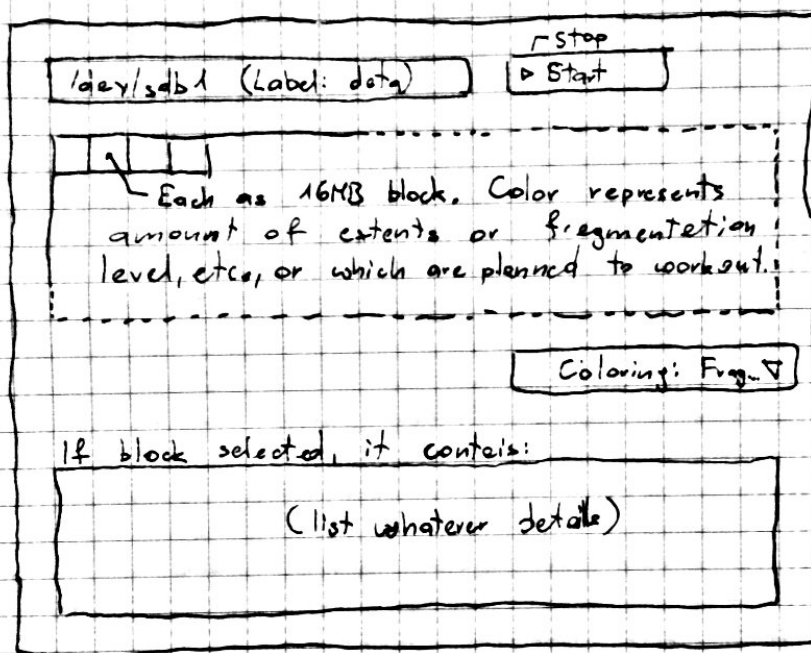 Stop
/dev/sdb1 (Label: data)
▷ Start
Each as 16MB block. Color represents
amount of extents or fragmentetion
level, etc., or which are planned to workout.
Coloring: Frag.. ▽
If block selected, it conteis:
(list whatever details)